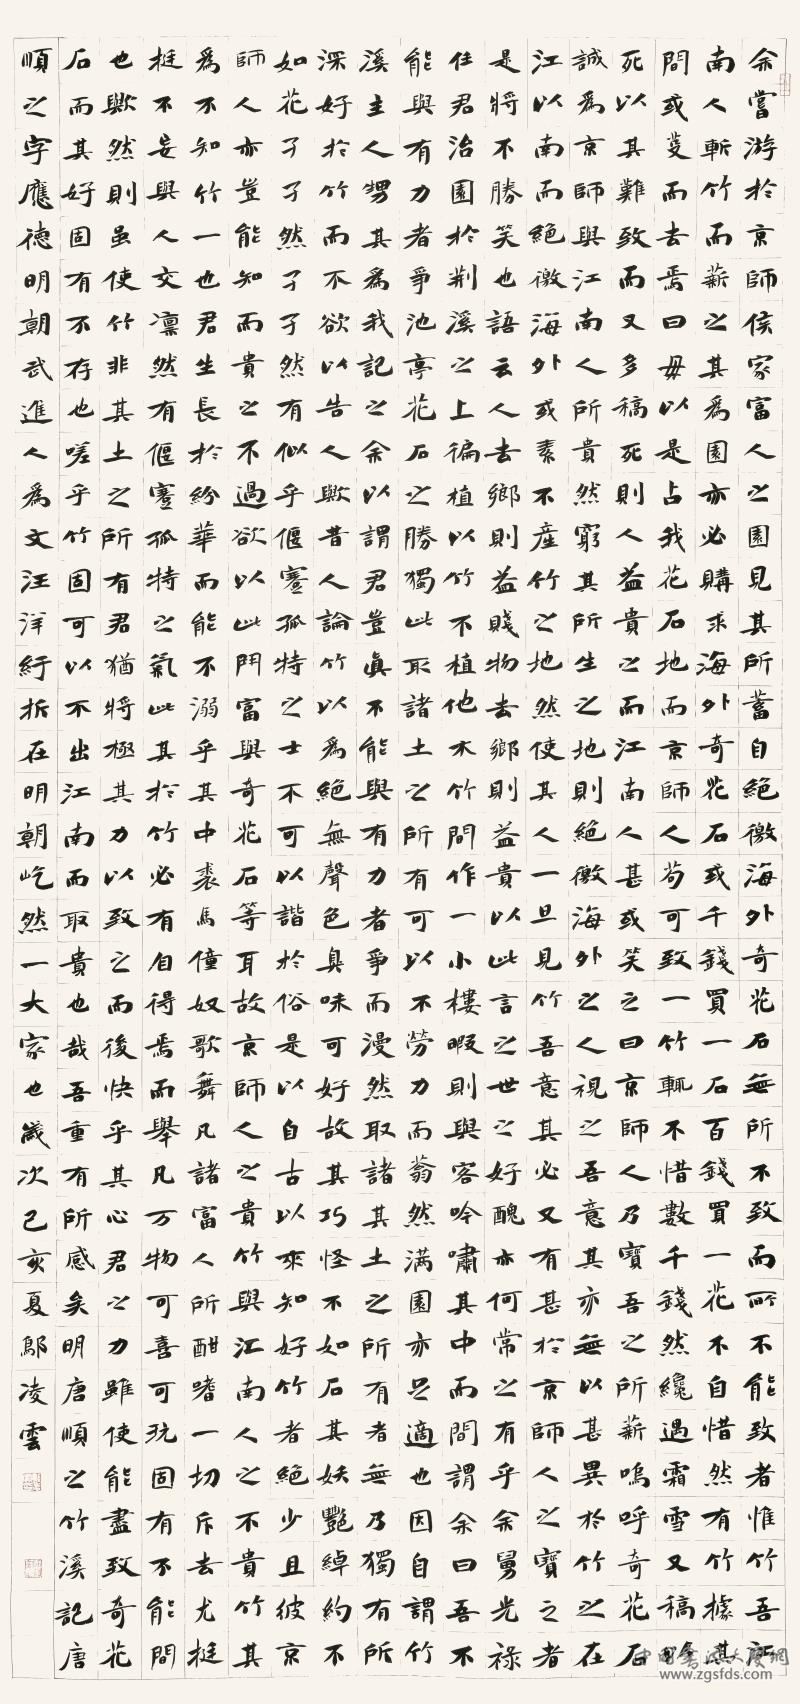 余嘗游於京師侯家富人之園見其所蓄自絕徼海外奇花石無所不致而所不能致者惟竹吾江
南人斬竹而薪之其為園亦必購求海外奇花石或千錢買一石百錢買一花不自惜然有竹據其
間或芟而去焉曰毋以是占我花石地而京師人苟可致一竹輒不惜數千錢然纔遇霜雪又稿
死以其難致而又多稿死則人益貴之而江南人甚或笑之曰京師人乃寶吾之所薪嗚呼奇花石
誠為京師與江南人所貴然窮其所生之地則絕徼海外之人視之吾意其亦無以甚異於竹之在
江以南而絕徼海外或素不產竹之地然使其人一旦見竹吾意其必又有甚於京師人之寶之者
是將不勝笑也語云人去鄉則益賤物去鄉則益貴以此言之世之好醜亦何常之有乎余舅光祿
任君治園於荊溪之上徧植以竹不植他木竹間作一小樓暇則與客吟嘯其中而間謂余曰吾不
能與有力者爭池亭花石之勝獨此取諸土之所有可以不勞力而蓊然滿園亦足適也因自謂竹
溪主人甥其為我記之余以謂君豈真不能與有力者爭而漫然取諸其土之所有者無乃獨有所
深好於竹而不欲以告人歟昔人論竹以為絕無聲色臭味可好故其巧怪不如石其妖豔綽約不
如花孑孑然孑孑然有似乎偃蹇孤特之士不可以諧於俗是以自古以來知好竹者絕少且彼京
師人亦豈能知而貴之不過欲以此鬥富與奇花石等耳故京師人之貴竹與江南人之不貴竹其
為不知竹一也君生長於紛華而能不溺乎其中裘馬僮奴歌舞凡諸富人所酣嗜一切斥去尤挺
挺不妄與人交凜然有偃蹇孤特之氣此其於竹必有自得焉而舉凡万物可喜可玩固有不能間
也歟然則虽使竹非其土之所有君猶將極其力以致之而後快乎其心君之力雖使能盡致奇花
石而其好固有不存也嗟乎竹固可以不出江南而取貴也哉吾重有所感矣明唐順之竹溪記唐
順之字應德明朝武進人為文汪洋紆折在明朝屹然一大家也歲次己亥夏鄢凌雲
中国書法大廈網
www.zgsfds.com